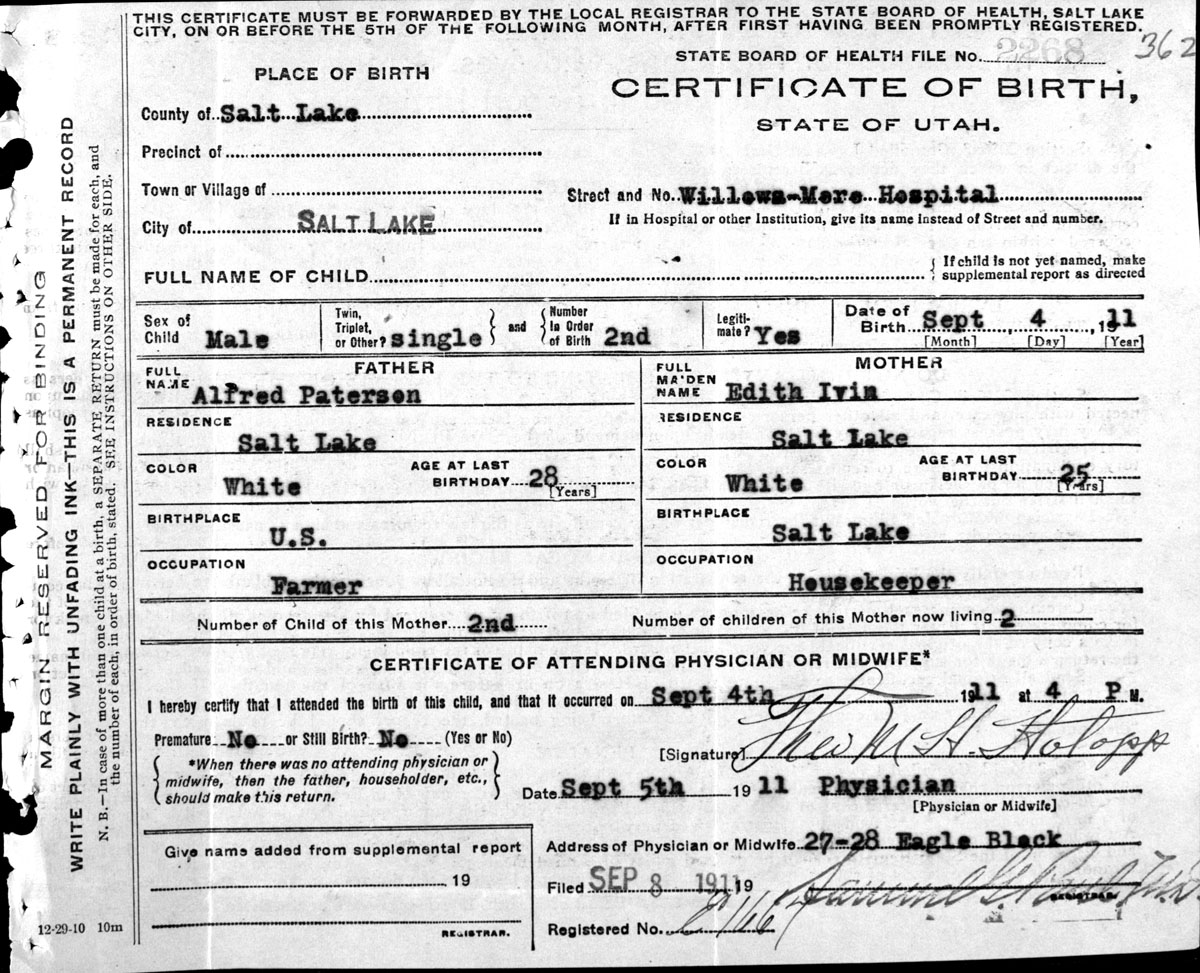 THIS CERTIFICATE MUST BE FORWARDED BY THE LOCAL REGISTRAR TO THE STATE BOARD OF HEALTH, SALT LAKE
CITY, ON OR BEFORE THE 5TH OF THE FOLLOWING MONTH, AFTER FIRST HAVING BEEN PROMPTLY REGISTERED.
362
STATE BOARD OF HEALTH FILE No. 2268
PLACE OF BIRTH
CERTIFICATE OF BIRTH,
STATE OF UTAH.
County of Salt Lake
Precinct of
Town or Village of
Street and No. Willows-Mere Hospital
City of SALT LAKE
If in Hospital or other Institution, give its name instead of Street and number.
FULL NAME OF CHILD
{ If child is not yet named, make
supplemental report as directed
Sex of Child Male
Twin, Triplet, or Other? single } and { Number In Order of Birth 2nd
Legiti-mate? Yes
Date of Birth Sept 4, 1911
[Month] [Day] [Year]
FATHER
FULL NAME Alfred Paterson
RESIDENCE
Salt Lake
COLOR White
AGE AT LAST BIRTHDAY 28 [Years]
BIRTHPLACE
U.S.
OCCUPATION
Farmer
MOTHER
FULL MAIDEN NAME Edith Ivin
RESIDENCE
Salt Lake
COLOR White
AGE AT LAST BIRTHDAY 25 [Years]
BIRTHPLACE
Salt Lake
OCCUPATION
Housekeeper
Number of Child of this Mother 2nd
Number of children of this Mother now living 2
CERTIFICATE OF ATTENDING PHYSICIAN OR MIDWIFE*
I hereby certify that I attended the birth of this child, and that it occurred on Sept 4th 1911 at 4 P M.
Premature No or Still Birth? No (Yes or No)
[Signature] Theo M H. Holopp
{ *When there was no attending physician or
midwife, then the father, householder, etc.,
should make this return. }
Date Sept 5th 1911 Physician
[Physician or Midwife]
Give name added from supplemental report
19
REGISTRAR.
Address of Physician or Midwife 27-28 Eagle Block
Filed SEP 8 1911 19
REGISTRAR.
Registered No.
12-29-10 10m
MARGIN RESERVED FOR BINDING
WRITE PLAINLY WITH UNFADING INK-THIS IS A PERMANENT RECORD
N. B.—In case of more than one child at a birth, a SEPARATE RETURN must be made for each, and
the number of each, in order of birth, stated. SEE INSTRUCTIONS ON OTHER SIDE.